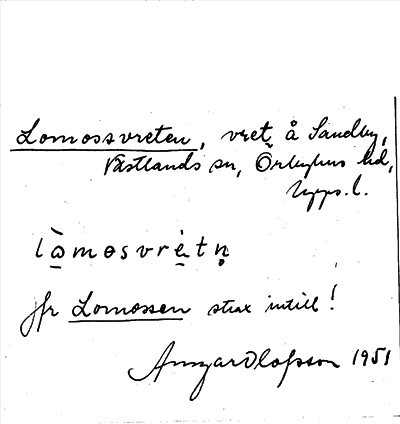 Lomossvreten, vret å Sandby,
Västlands sn, Örbyhus hd,
Upps. l.
lò̠mosvrè̠tṇ
Jfr Lomossen strax intill!
Ansgar Olofsson 1951